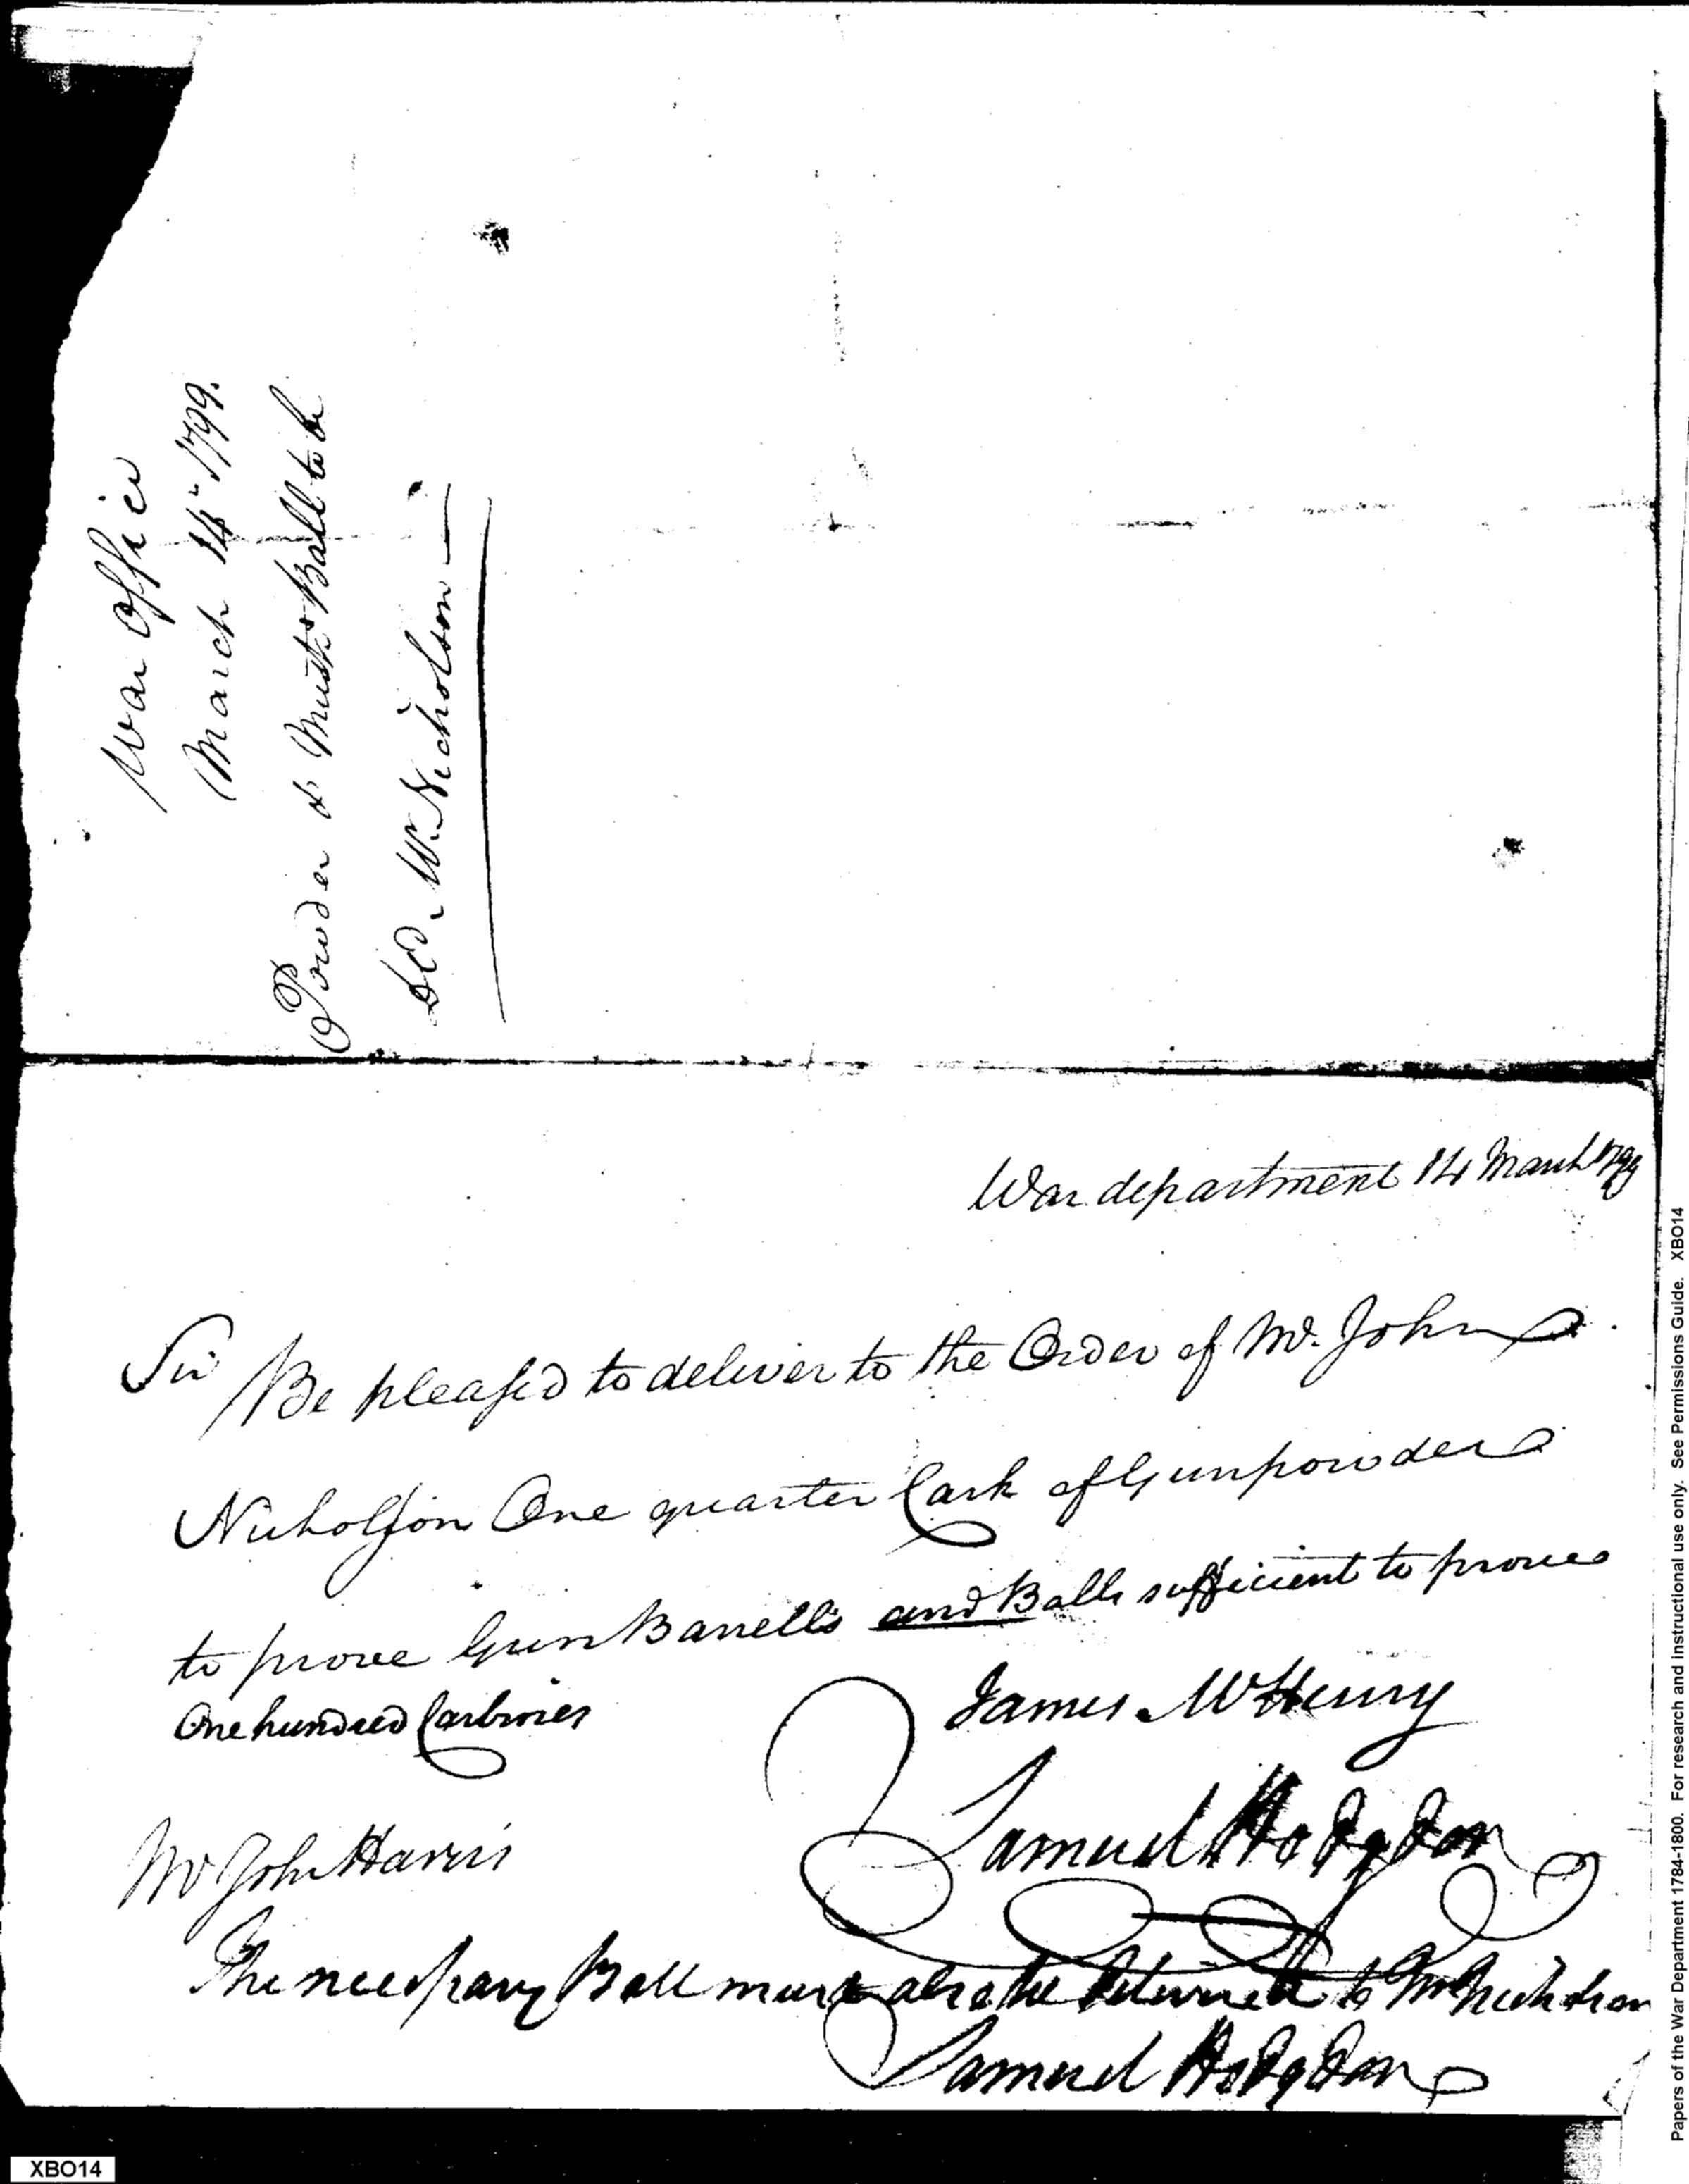 War Office
March 14th 1799.
Powder & Muskt Ball to be
dd. Mr. Nicholson
War department 14 March 1799
Sir
Be pleased to deliver to the Order of Mr. John
Nicholson One quarter Cask of Gunpowder
to prove Gun Barrells and Balls sufficient to prove
One hundred Carbines
James McHenry
Samuel Hodgdon
Mr John Harris
The necessary Ball must also be delivered to Mr Nicholson
Samuel Hodgdon
Papers of the War Department 1784-1800. For research and instructional use only. See Permissions Guide. XBO14
XBO14